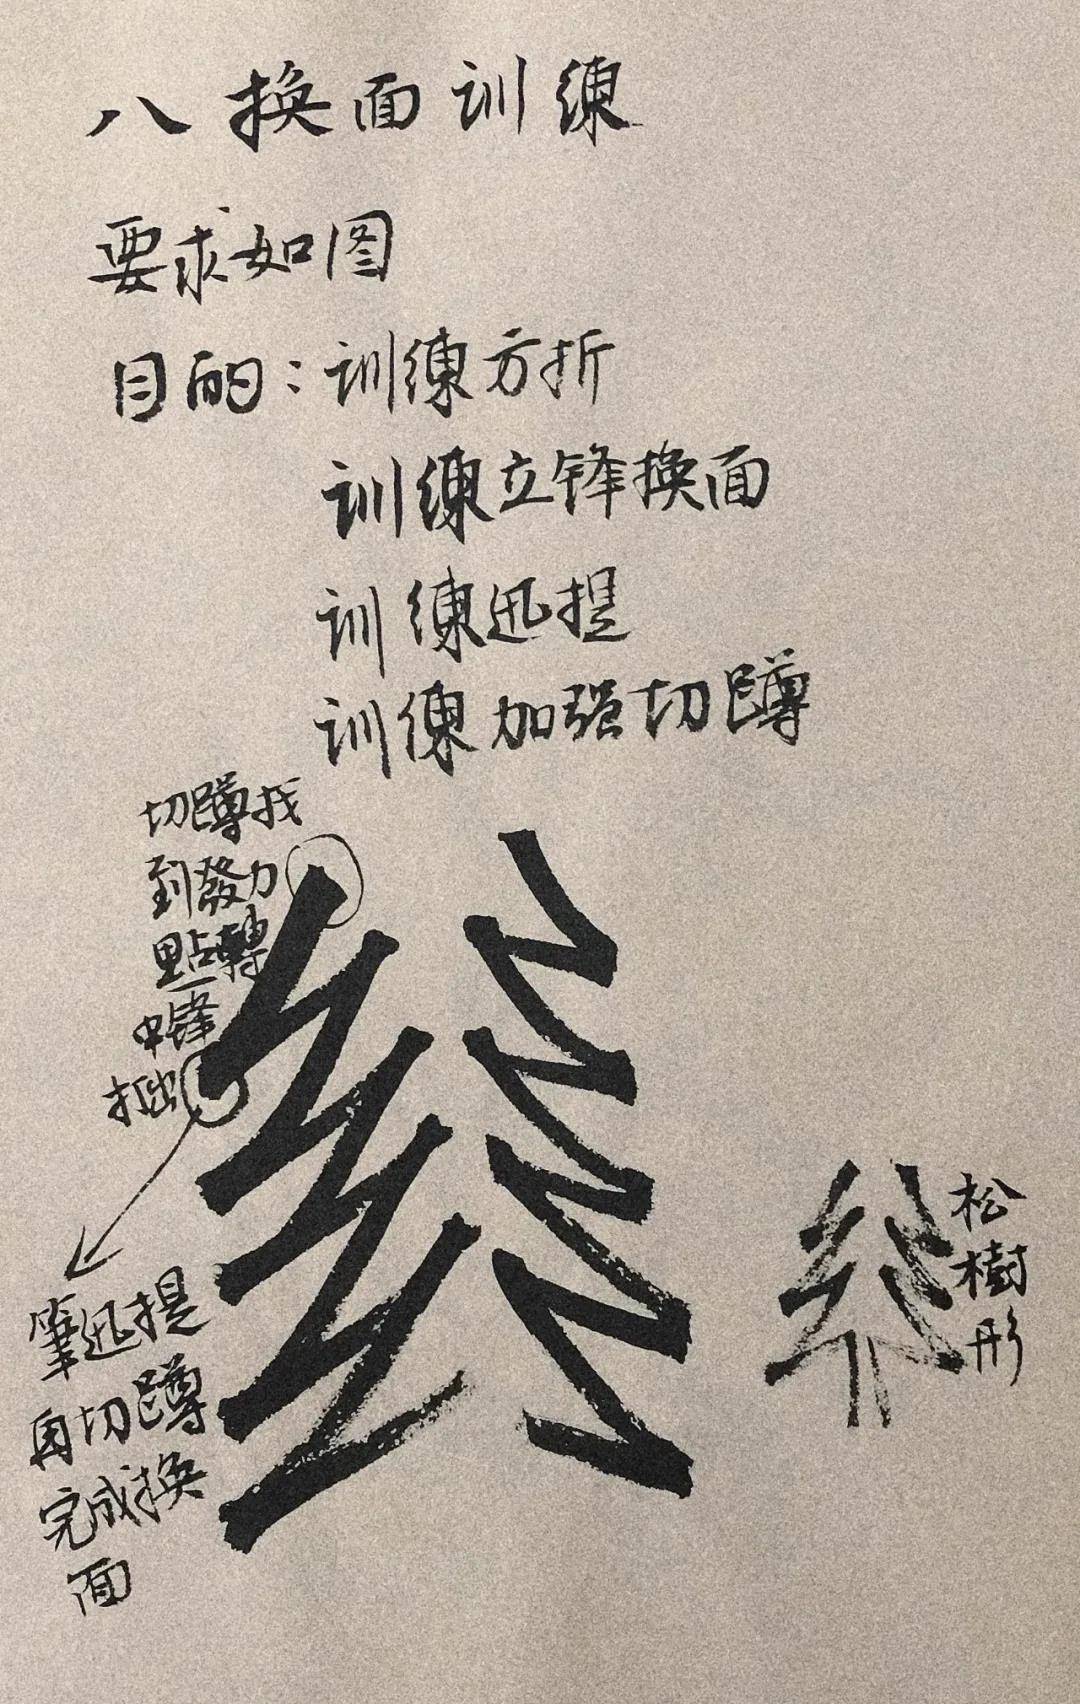 八换面训练
要求如图
目的：训练方折
训练立锋换面
训练迅提
训练加强切蹲
切蹲找
到發力
點轉
中锋
拙
筆迅提
再切蹲
完成换
面
松
樹
形